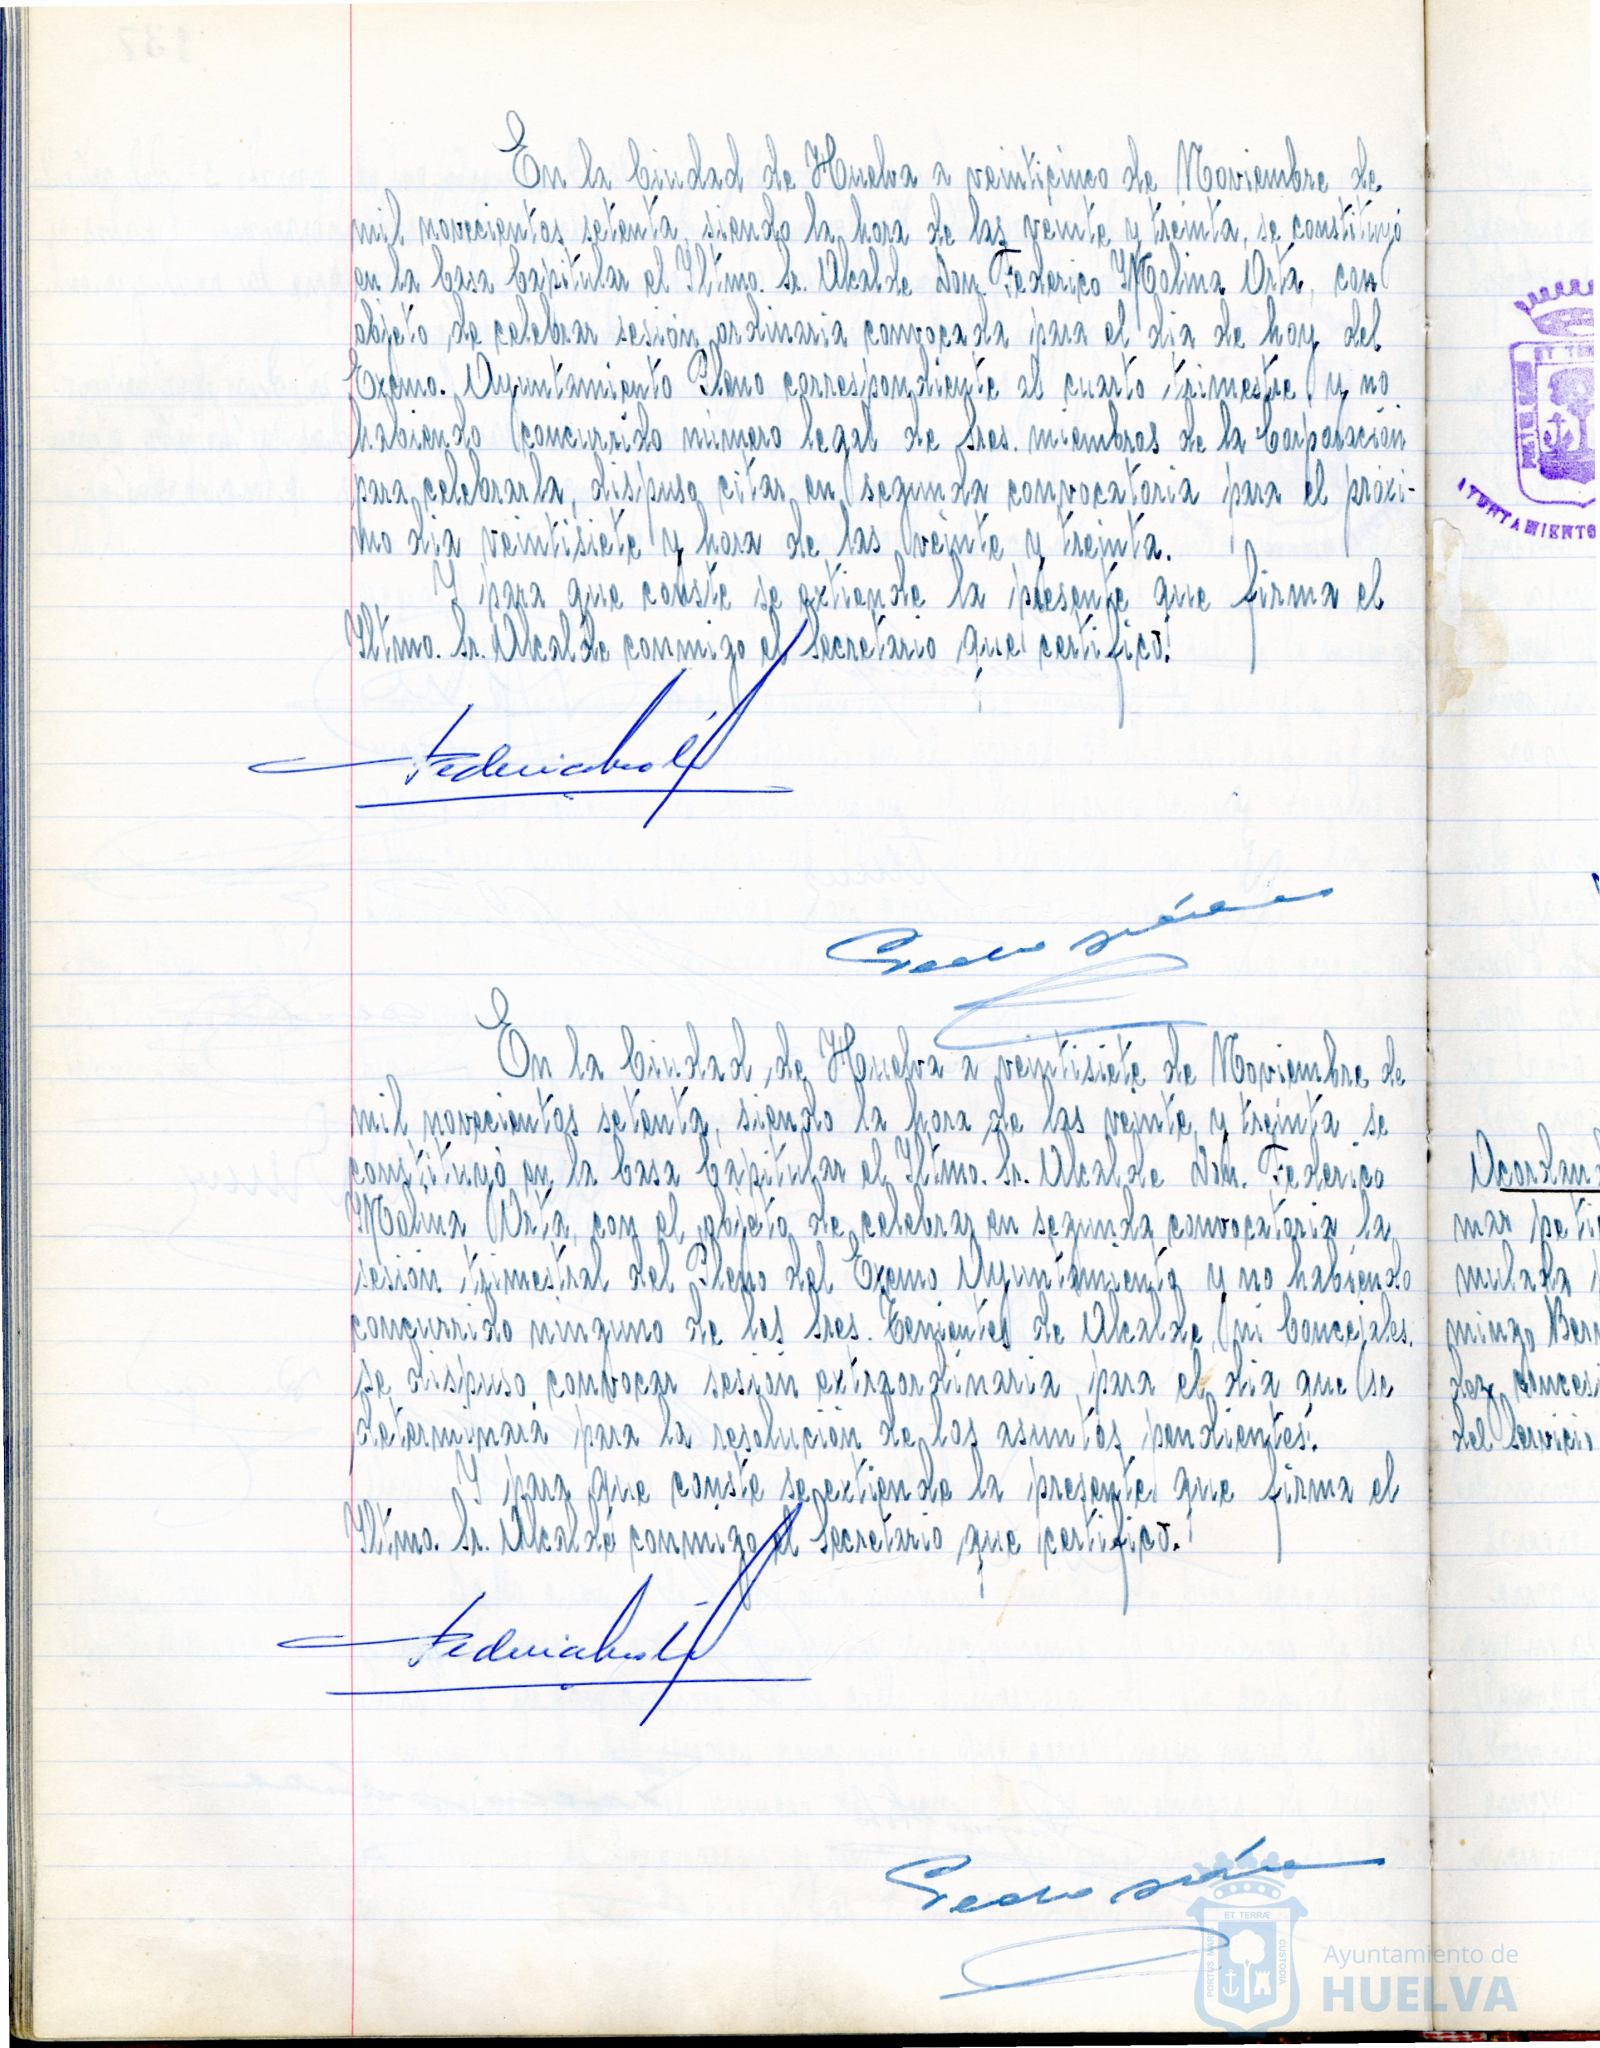 En la Ciudad de Huelva a veinticinco de Noviembre de
mil novecientos setenta, siendo la hora de las veinte y treinta, se constituyó
en la Casa Capitular el Iltmo. Sr. Alcalde Don Federico Molina Orta, con
objeto de celebrar sesión ordinaria convocada para el dia de hoy del
Excmo. Ayuntamiento Pleno correspondiente al cuarto trimestre y no
habiendo concurrido número legal de Sres. miembros de la Corporación
para celebrarla, dispuso citar en segunda convocatoria para el próxi-
mo dia veintisiete y hora de las veinte y treinta.
Y para que conste se extiende la presente que firma el
Iltmo. Sr. Alcalde conmigo el Secretario que certifico.
En la Ciudad de Huelva a veintisiete de Noviembre de
mil novecientos setenta, siendo la hora de las veinte y treinta se
constituyó en la Casa Capitular el Iltmo. Sr. Alcalde Don. Federico
Molina Orta, con el objeto de celebrar en segunda convocatoria la
sesión trimestral del Pleno del Excmo Ayuntamiento y no habiendo
concurrido ninguno de los Sres. Tenientes de Alcalde, ni Concejales.
se dispuso convocar sesión extraordinaria para el dia que se
determinará para la resolución de los asuntos pendientes.
Y para que conste se extiende la presente que firma el
Iltmo. Sr. Alcalde conmigo el Secretario que certifico.
Pedro
ET TERRÆ
PORTUS MARIS
CUSTODIA
Ayuntamiento de
HUELVA
AYUNTAMIENTO
del Servicio